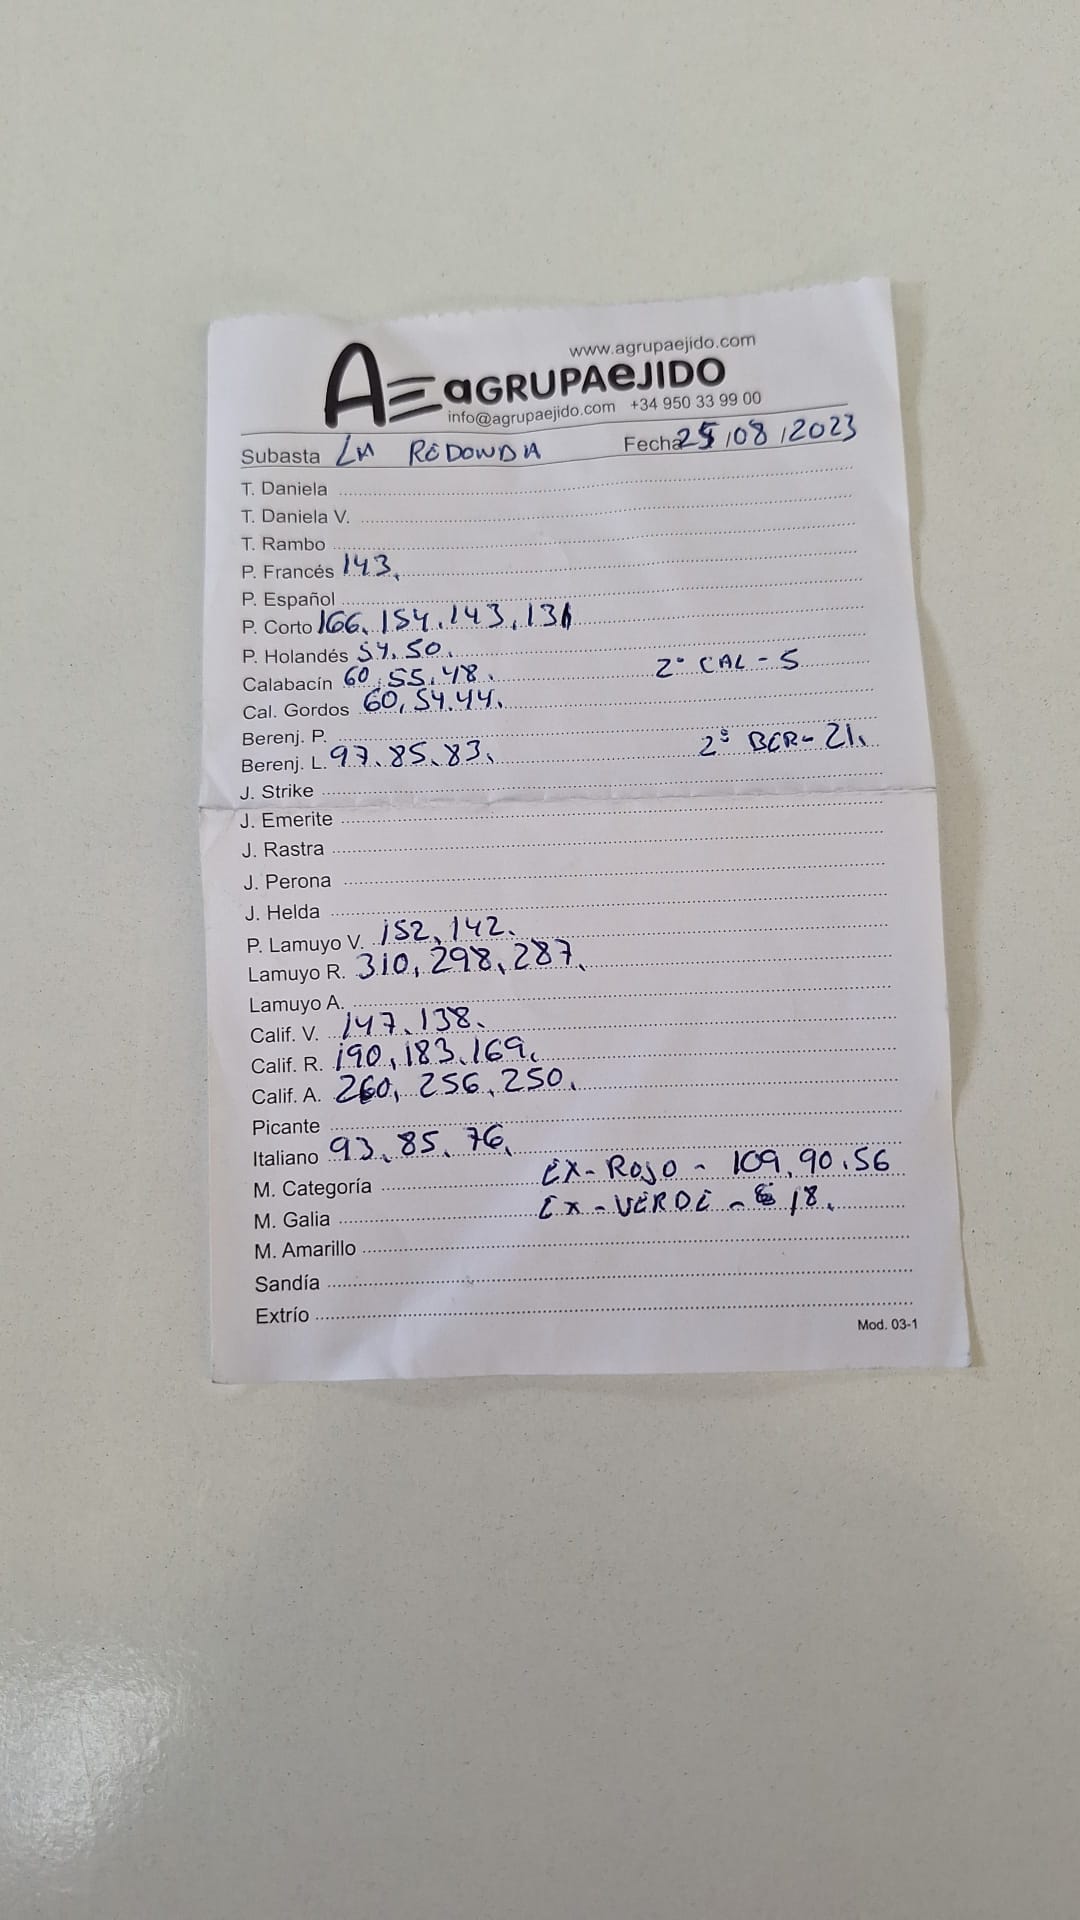 www.agrupaejido.com
AE aGRUPAeJIDO
info@agrupaejido.com +34 950 33 99 00
Subasta LA REDONDA Fecha 25/08/2023
T. Daniela
T. Daniela V.
T. Rambo
P. Francés 143.
P. Español
P. Corto 166. 154. 143. 131
P. Holandés 54. 50.
Calabacín 60. 55. 48. 2ª CAL - 5
Cal. Gordos 60, 54. 44.
Berenj. P.
Berenj. L. 97. 85. 83. 2ª BER- 21.
J. Strike
J. Emerite
J. Rastra
J. Perona
J. Helda
P. Lamuyo V. 152, 142.
Lamuyo R. 310, 298, 287.
Lamuyo A.
Calif. V. 147. 138.
Calif. R. 190, 183. 169.
Calif. A. 260, 256, 250.
Picante
Italiano 93. 85. 76.
M. Categoría EX-ROJO - 109. 90. 56
M. Galia EX-VERDE - 18.
M. Amarillo
Sandía
Extrío
Mod. 03-1